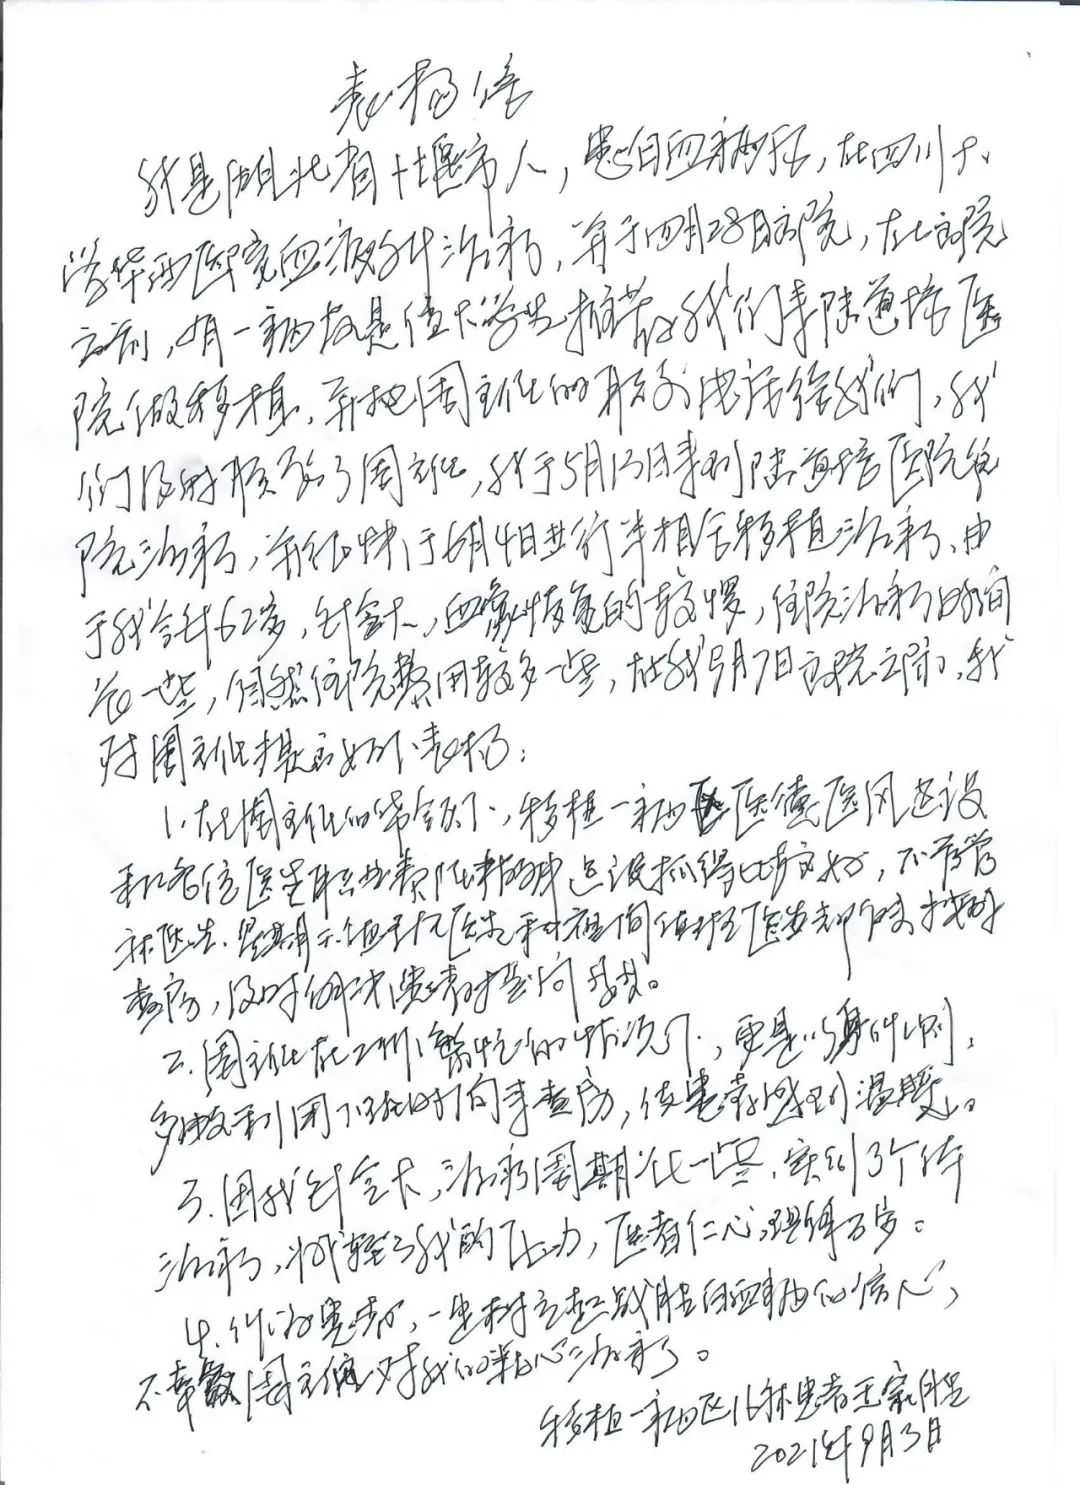 表扬信
我是湖北省十堰市人，患白血病后，在四川大
学华西医院血液科治疗，并于四月28日出院，在出院
之前，有一病友是位大学生推荐我们来陆道培医
院做移植，并把周主任的联系电话给我们，我
们及时联系了周主任，我于5月13日来到陆道培医院住
院治疗，并很快于6月4日进行半相合移植治疗，由
于我今年62岁，年龄大，血象恢复的较慢，住院治疗时间
长一些，自然住院费用较多一些，在我9月7日出院之际，我
对周主任提出如下表扬：
1、在周主任的带领下，移植一病区医德医风建设
和各位医生职业精神建设抓得比较好，不管管
床医生、星期六值班医生和夜间值班医生都按时
查房，及时解决患者问题。
2、周主任在工作繁忙的情况下，更是以身作则，
多数利用下班时间来查房，使患者感到温暖。
3、因我年龄大，治疗周期长一些，实行3个
治疗，减轻了我的压力，医者仁心，理得万岁。
4、作为患者，一定树立起战胜白血病的信心，
不辜负周主任对我的精心治疗。
移植一病区16床患者王家胜
2021年9月3日